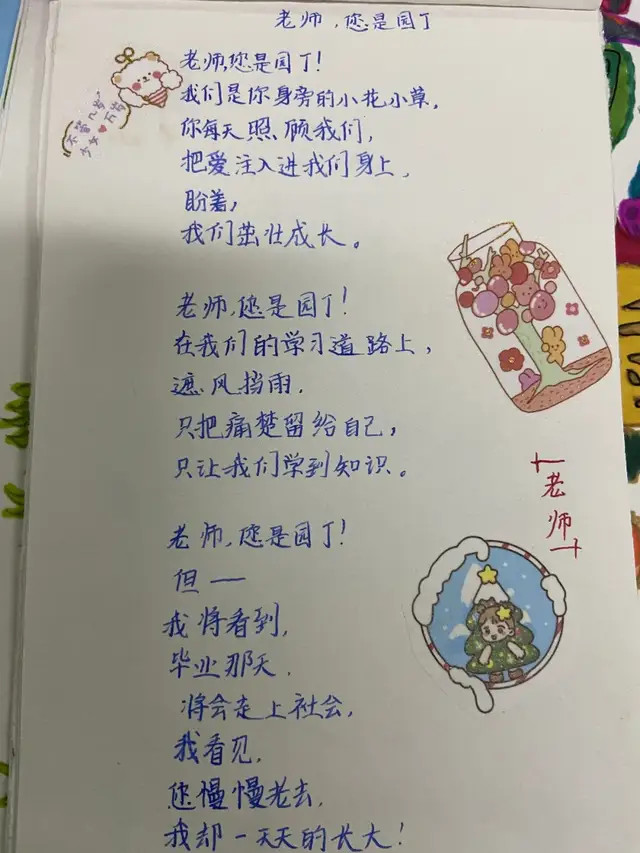 老师,您是园丁
老师,您是园丁!
我们是你身旁的小花小草,
你每天照顾我们,
把爱注入进我们身上,
盼着,
我们茁壮成长。
不管几岁
少女♥万岁
老师,您是园丁!
在我们的学习道路上,
遮风挡雨.
只把痛楚留给自己,
只让我们学到知识。
老师
老师,您是园丁!
但——
我将看到,
毕业那天.
将会走上社会,
我看见,
您慢慢老去.
我却一天天的长大!